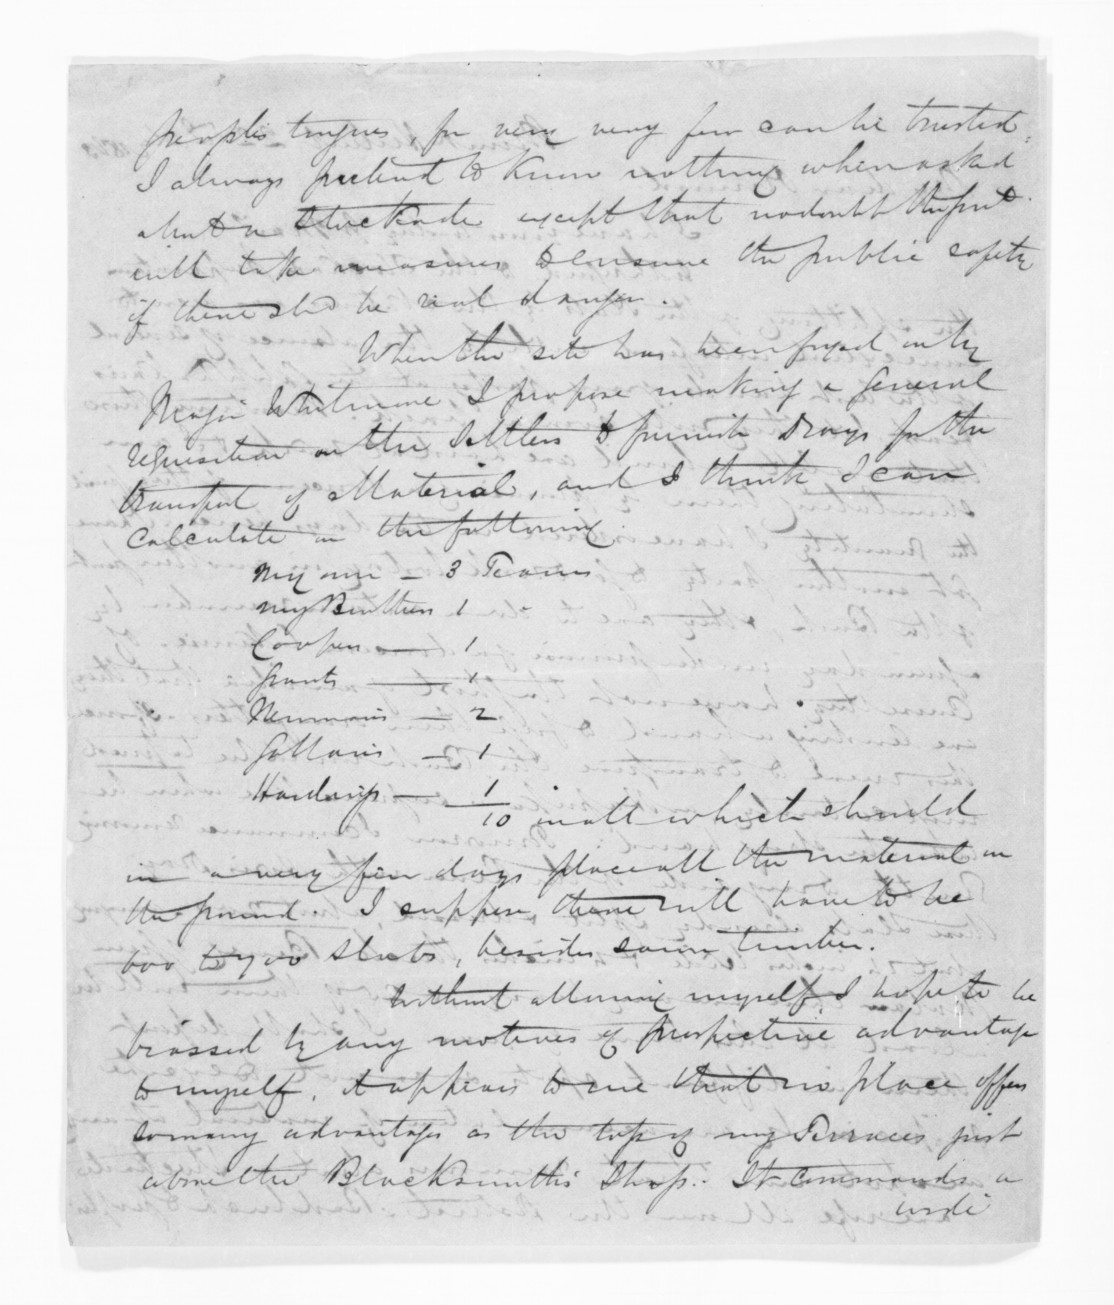 people's tongues for very very few can be trusted.
I always pretend to know nothing when asked
about a Stockade except that no doubt the Govt
will take measures to ensure the public safety
if there shd be real danger.
When the site has been fixed on by
Major Whitmore I propose making a general
requisition on the Settlers to furnish Drays for the
transport of Material, and I think I can
calculate on the following
My own - 3 Teams
My Brothers 1
Coopers — 1
Grants — 1
Newmans — 2
1
Hardings — 1
10 in all which should
in a very few days place all the material on
the ground. I suppose there will have to be
600 to 700 slabs, besides sawn timber.
Without allowing myself I hope to be
biassed by any motives of prospective advantage
to myself, it appears to me that no place offers
so many advantages as the top of my Terraces just
above the Blacksmith's Shop. It commands a
wide